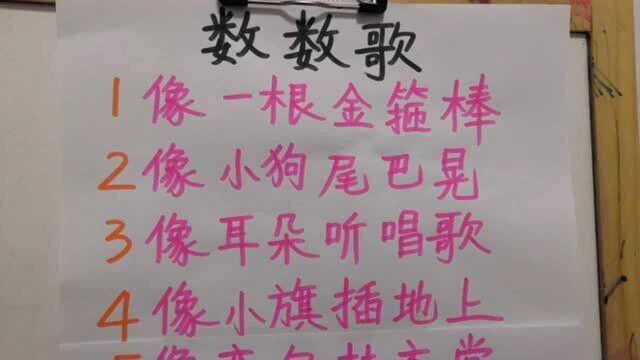 数数歌
1像一根金箍棒
2像小狗尾巴晃
3像耳朵听唱歌
4像小旗插地上